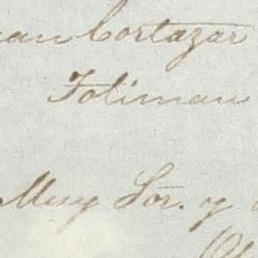 an Cortazar
Toliman
Muy Sor. y